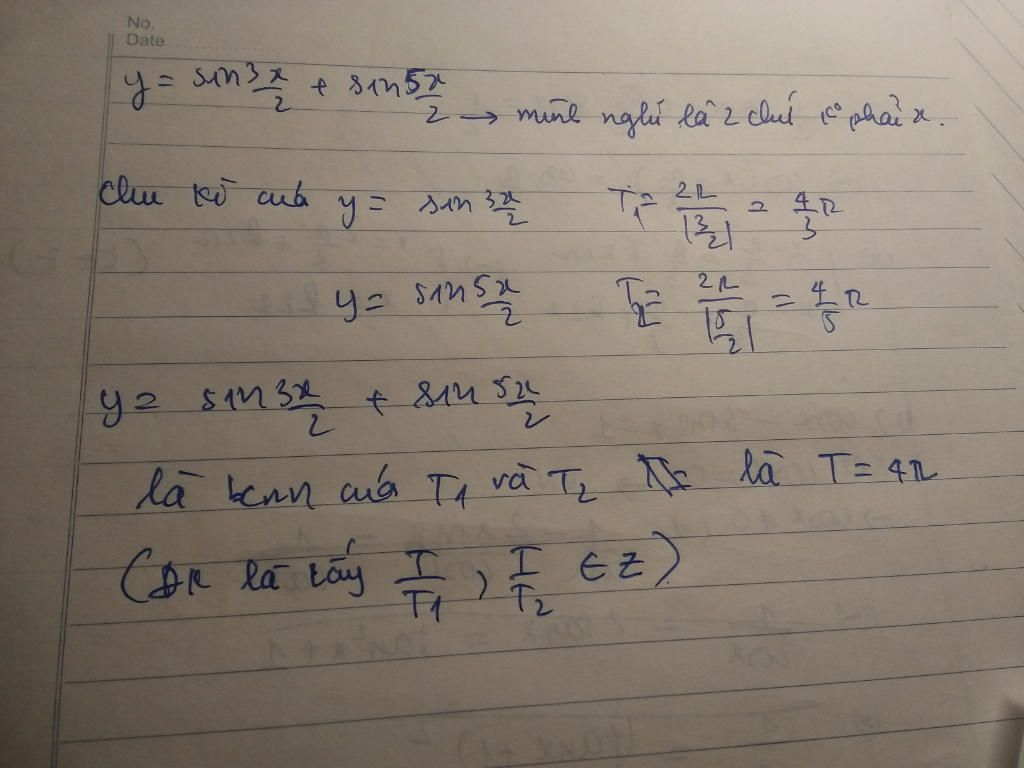 No.
Date
y = sin 3x/2 + sin 5x/2 → mình nghĩ là 2 chứ k phải x.
Chu kì của y = sin 3x/2 T1 = 2π/|3/2| = 4/3 π
y = sin 5x/2 T2 = 2π/|5/2| = 4/5 π
y = sin 3x/2 + sin 5x/2
là bcnn của T1 và T2 là T = 4π
(ĐK là lấy T/T1, T/T2 ∈ Z)